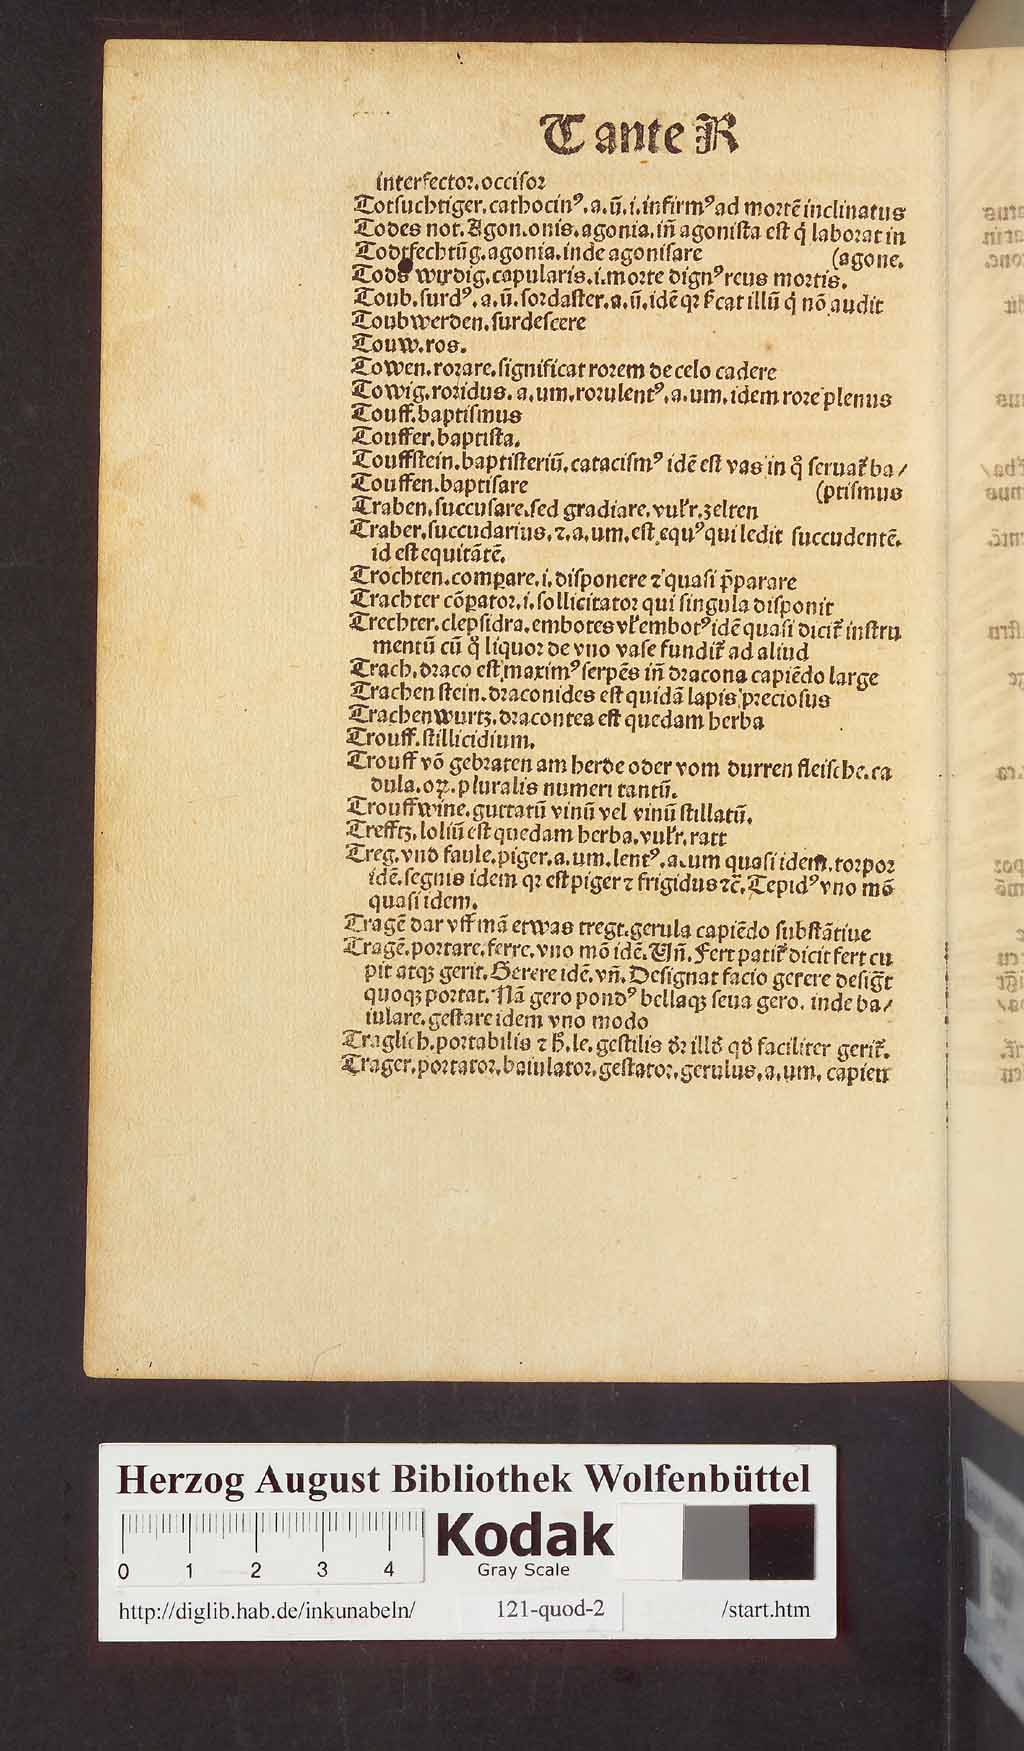 T ante R
interfector.occisor
Totsuchtiger.cathocinꝰ.a.ū.i.infirmꝰ ad mortē inclinatus
Todes not. Agon.onis.agonia.iñ agonista est q̇ laborat in
Todtfechtūg.agonia.inde agonisare (agone.
Tods wirdig.capularis.i.morte dignꝰ reus mortis.
Toub.surdꝰ.a.ū.sordaster.a.ū.idē qꝛ ẜcat illū q̇ nō audit
Toub werden.surdescere
Touw.ros.
Towen.rorare.significat rorem de celo cadere
Towig.roridus.a.um.rorulentꝰ.a.um.idem rore plenus
Touff.baptismus
Touffer.baptista.
Touffstein.baptisteriū.catacismꝰ idē est vas in q̊ seruat᷑ ba/
Touffen.baptisare (ptismus
Traben.succusare.sed gradiare.vulr̕.zelten
Traber.succudarius.⁊.a.um.est equꝰ qui ledit succudentē.
id est equitātē.
Trochten.compare.i.disponere ⁊ quasi p̄parare
Trachter cōpator.i.sollicitator qui singula disponit
Trechter.clepsidra.embotes vl̕ embotꝰ idē quasi dicit᷑ instru
mentū cū q̊ liquor de vno vase fundit᷑ ad aliud
Trach.draco est maximꝰ serpēs iñ dracona capiēdo large
Trachen stein.draconides est quidā lapis preciosus
Trachen wurtz.dracontea est quedam herba
Trouff.stillicidium.
Trouff vō gebraten am herde oder vom durren fleische.ca
dula.oꝝ.pluralis numeri tantū.
Trouff wine.guttatū vinū vel vinū stillatū.
Trefftz.loliū est quedam herba.vulr̕.ratt
Treg.vnd faule.piger.a.um.lentꝰ.a.um quasi idem.torpor
idē.segnis idem qꝛ est piger ⁊ frigidus ⁊c̄.Tepidꝰ vno mō
quasi idem.
Tragē dar vff mā etwas tregt.gerula capiēdo substātiue
Tragē.portare.ferre.vno mō idē.Vñ.Fert patit᷑ dicit fert cu
pit atqꝫ gerit.Gerere idē.vñ.Designat facio gerere desig̅t
quoqꝫ portat.Nā gero pondꝰ bellaqꝫ seua gero.inde ba/
iulare.gestare idem vno modo
Traglich.portabilis ⁊ h̕.le.gestilis dr̄ illd̕ qd̕ faciliter gerit᷑.
Trager.portator.baiulator.gestator.gerulus.a.um.capien
Herzog August Bibliothek Wolfenbüttel
0 1 2 3 4
Kodak
Gray Scale
http://diglib.hab.de/inkunabeln/ 121-quod-2 /start.htm